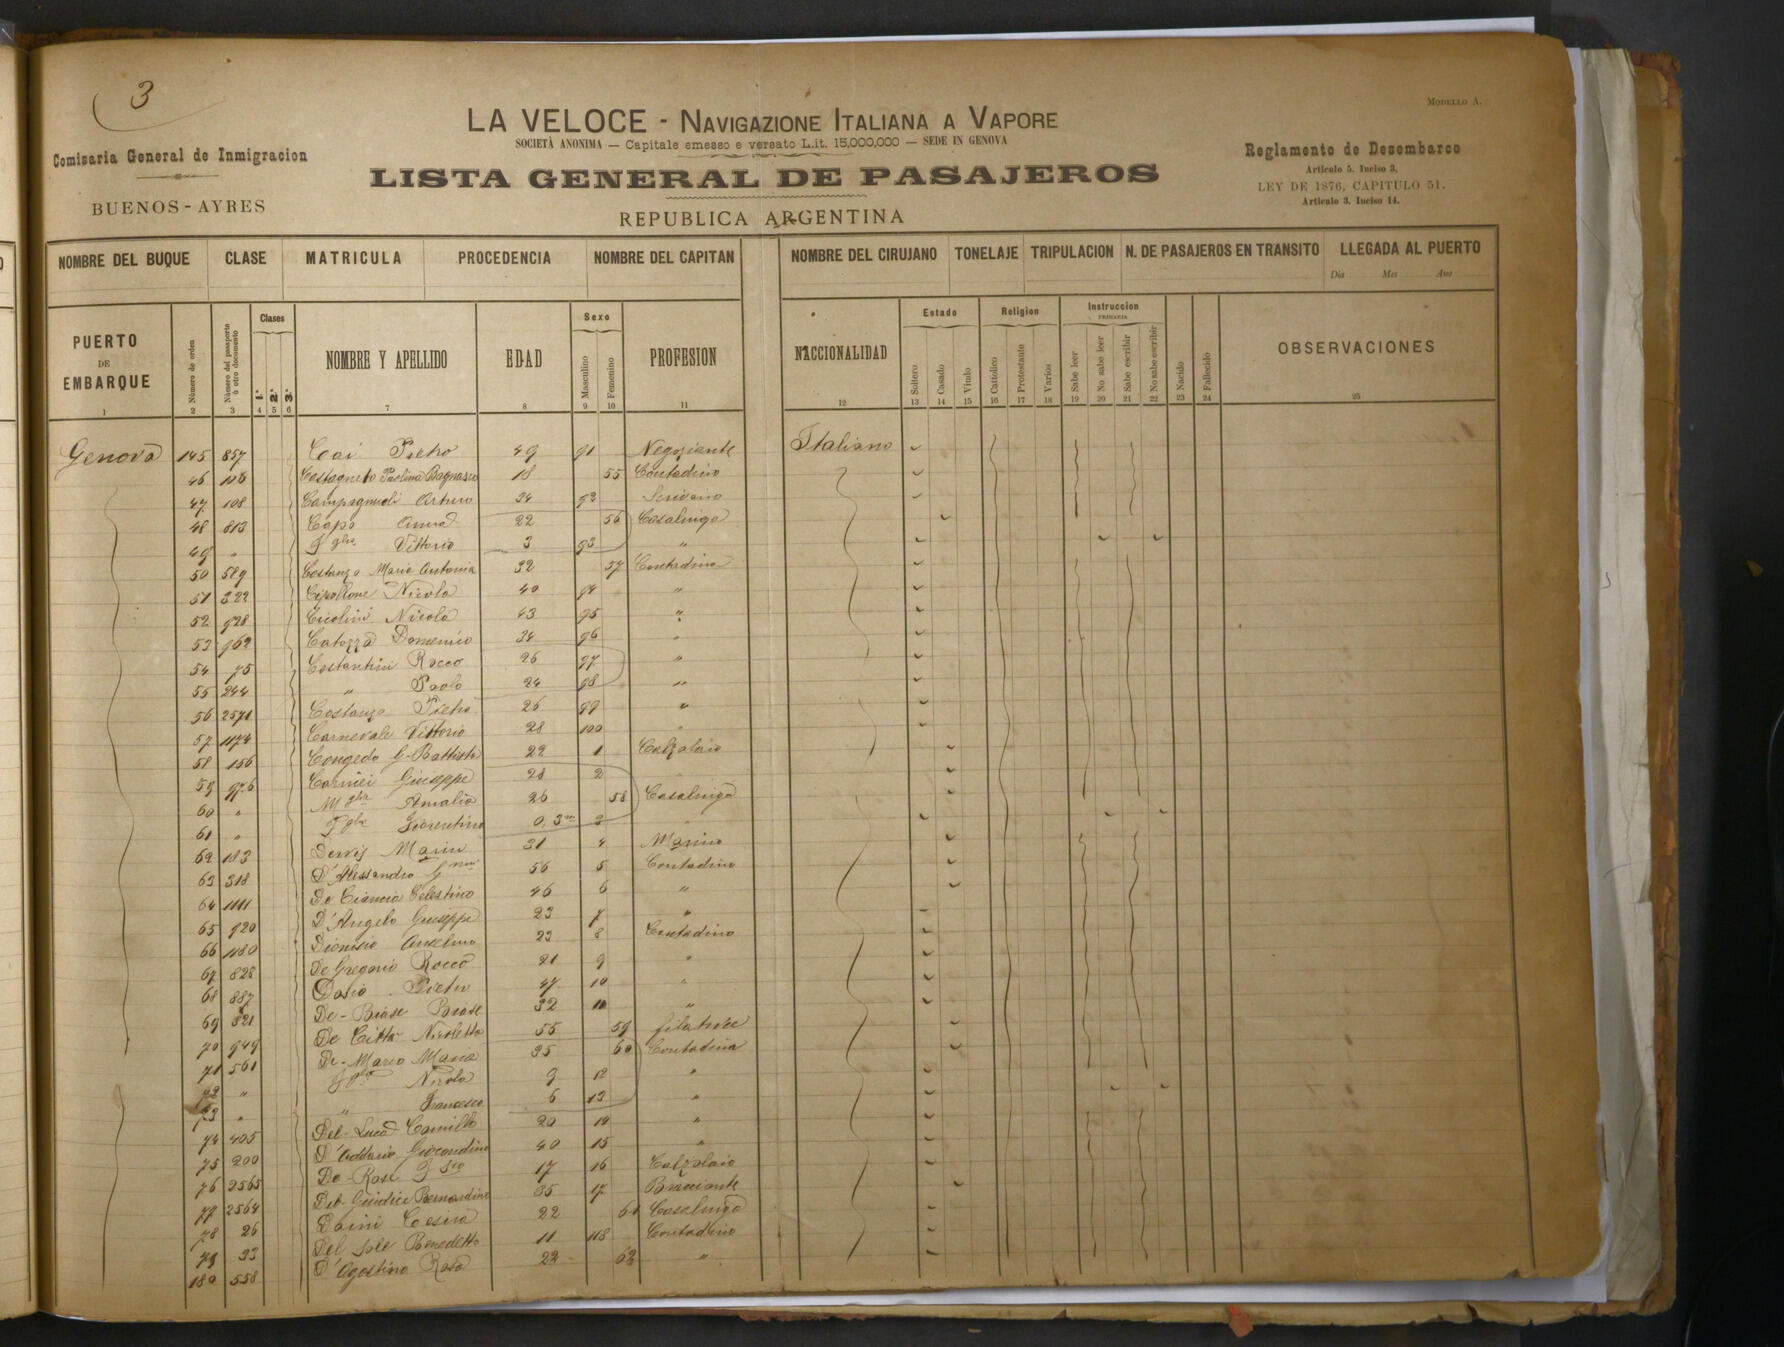 3
MODELLO A.
LA VELOCE - NAVIGAZIONE ITALIANA A VAPORE
SOCIETÀ ANONIMA — Capitale emesso e versato L.it. 15,000,000 — SEDE IN GENOVA
Comisaria General de Inmigracion
BUENOS-AYRES
LISTA GENERAL DE PASAJEROS
REPUBLICA ARGENTINA
Reglamento de Desembarco
Articulo 5. Inciso 3,
LEY DE 1876, CAPITULO 51.
Articulo 3. Inciso 14.
NOMBRE DEL BUQUE CLASE MATRICULA PROCEDENCIA NOMBRE DEL CAPITAN NOMBRE DEL CIRUJANO TONELAJE TRIPULACION N. DE PASAJEROS EN TRANSITO LLEGADA AL PUERTO
Dia Mes Ano
PUERTO DE EMBARQUE Número de orden Número del pasaporte ú otro documento Clases 1.ª 2.ª 3.ª NOMBRE Y APELLIDO EDAD Sexo Masculino Femenino PROFESION NACCIONALIDAD Estado Soltero Casado Viudo Religion Cattolico Protestante Varios Instruccion PRIMARIA Sabe leer No sabe leer Sabe escribir No sabe escribir Nacido Fallecido OBSERVACIONES
1 2 3 4 5 6 7 8 9 10 11 12 13 14 15 16 17 18 19 20 21 22 23 24 25
Genova 145 857 Cai Pietro 49 91 Negoziante Italiano
46 Castagneto Paolina Bagnasco 18 55 Contadino
47 108 Campagnuoli Arturo 34 92 Scrivano
48 813 Capo Anna 22 56 Casalinga
49 " Vittorio 3 93 "
50 589 Costanzo Maria Antonia 32 57 Contadina
51 322 Cipollone Nicola 40 94 "
52 928 Cicolini Nicola 43 95 "
53 962 Catozza Domenico 34 96 "
54 75 Costantini Rocco 26 97 "
55 244 " Paolo 24 98 "
56 2571 Costanzo Pietro 26 99 "
57 1174 Carnevale Vittorio 28 100 "
58 156 Congedo G. Battista 22 1 Calzolaio
59 976 Giuseppe 28 2
60 " Mglie Amalia 26 58 Casalinga
61 " Fiorentino 0,3 m 3
62 183 Marin 31 4 Marino
63 318 D'Alessandro 56 5 Contadino
64 1111 De Ciancio Celestino 46 6 "
65 920 D'Angelo Giuseppe 23 7 "
66 1180 Dionisio Anselmo 23 8 Contadino
67 828 De Gregorio Rocco 21 9 "
68 887 Pietro 47 10 "
69 821 De-Biase Biase 32 11 "
70 949 De Citta Nicoletta 55 59 filatrice
71 561 De-Marco Maria 35 60 Contadina
72 " Nicola 9 12 "
73 " " Francesco 6 13 "
74 405 Del-Luca Camillo 20 14 "
75 200 D'Addario Giocondino 40 15 "
76 2565 De-Rose 17 16 Calzolaio
77 2564 Del-Giudice Bernardino 35 17 Bracciante
78 26 Cesira 22 61 Casalinga
79 33 Del Sole Benedetto 11 118 Contadino
180 558 D'Agostino Rosa 22 62 "